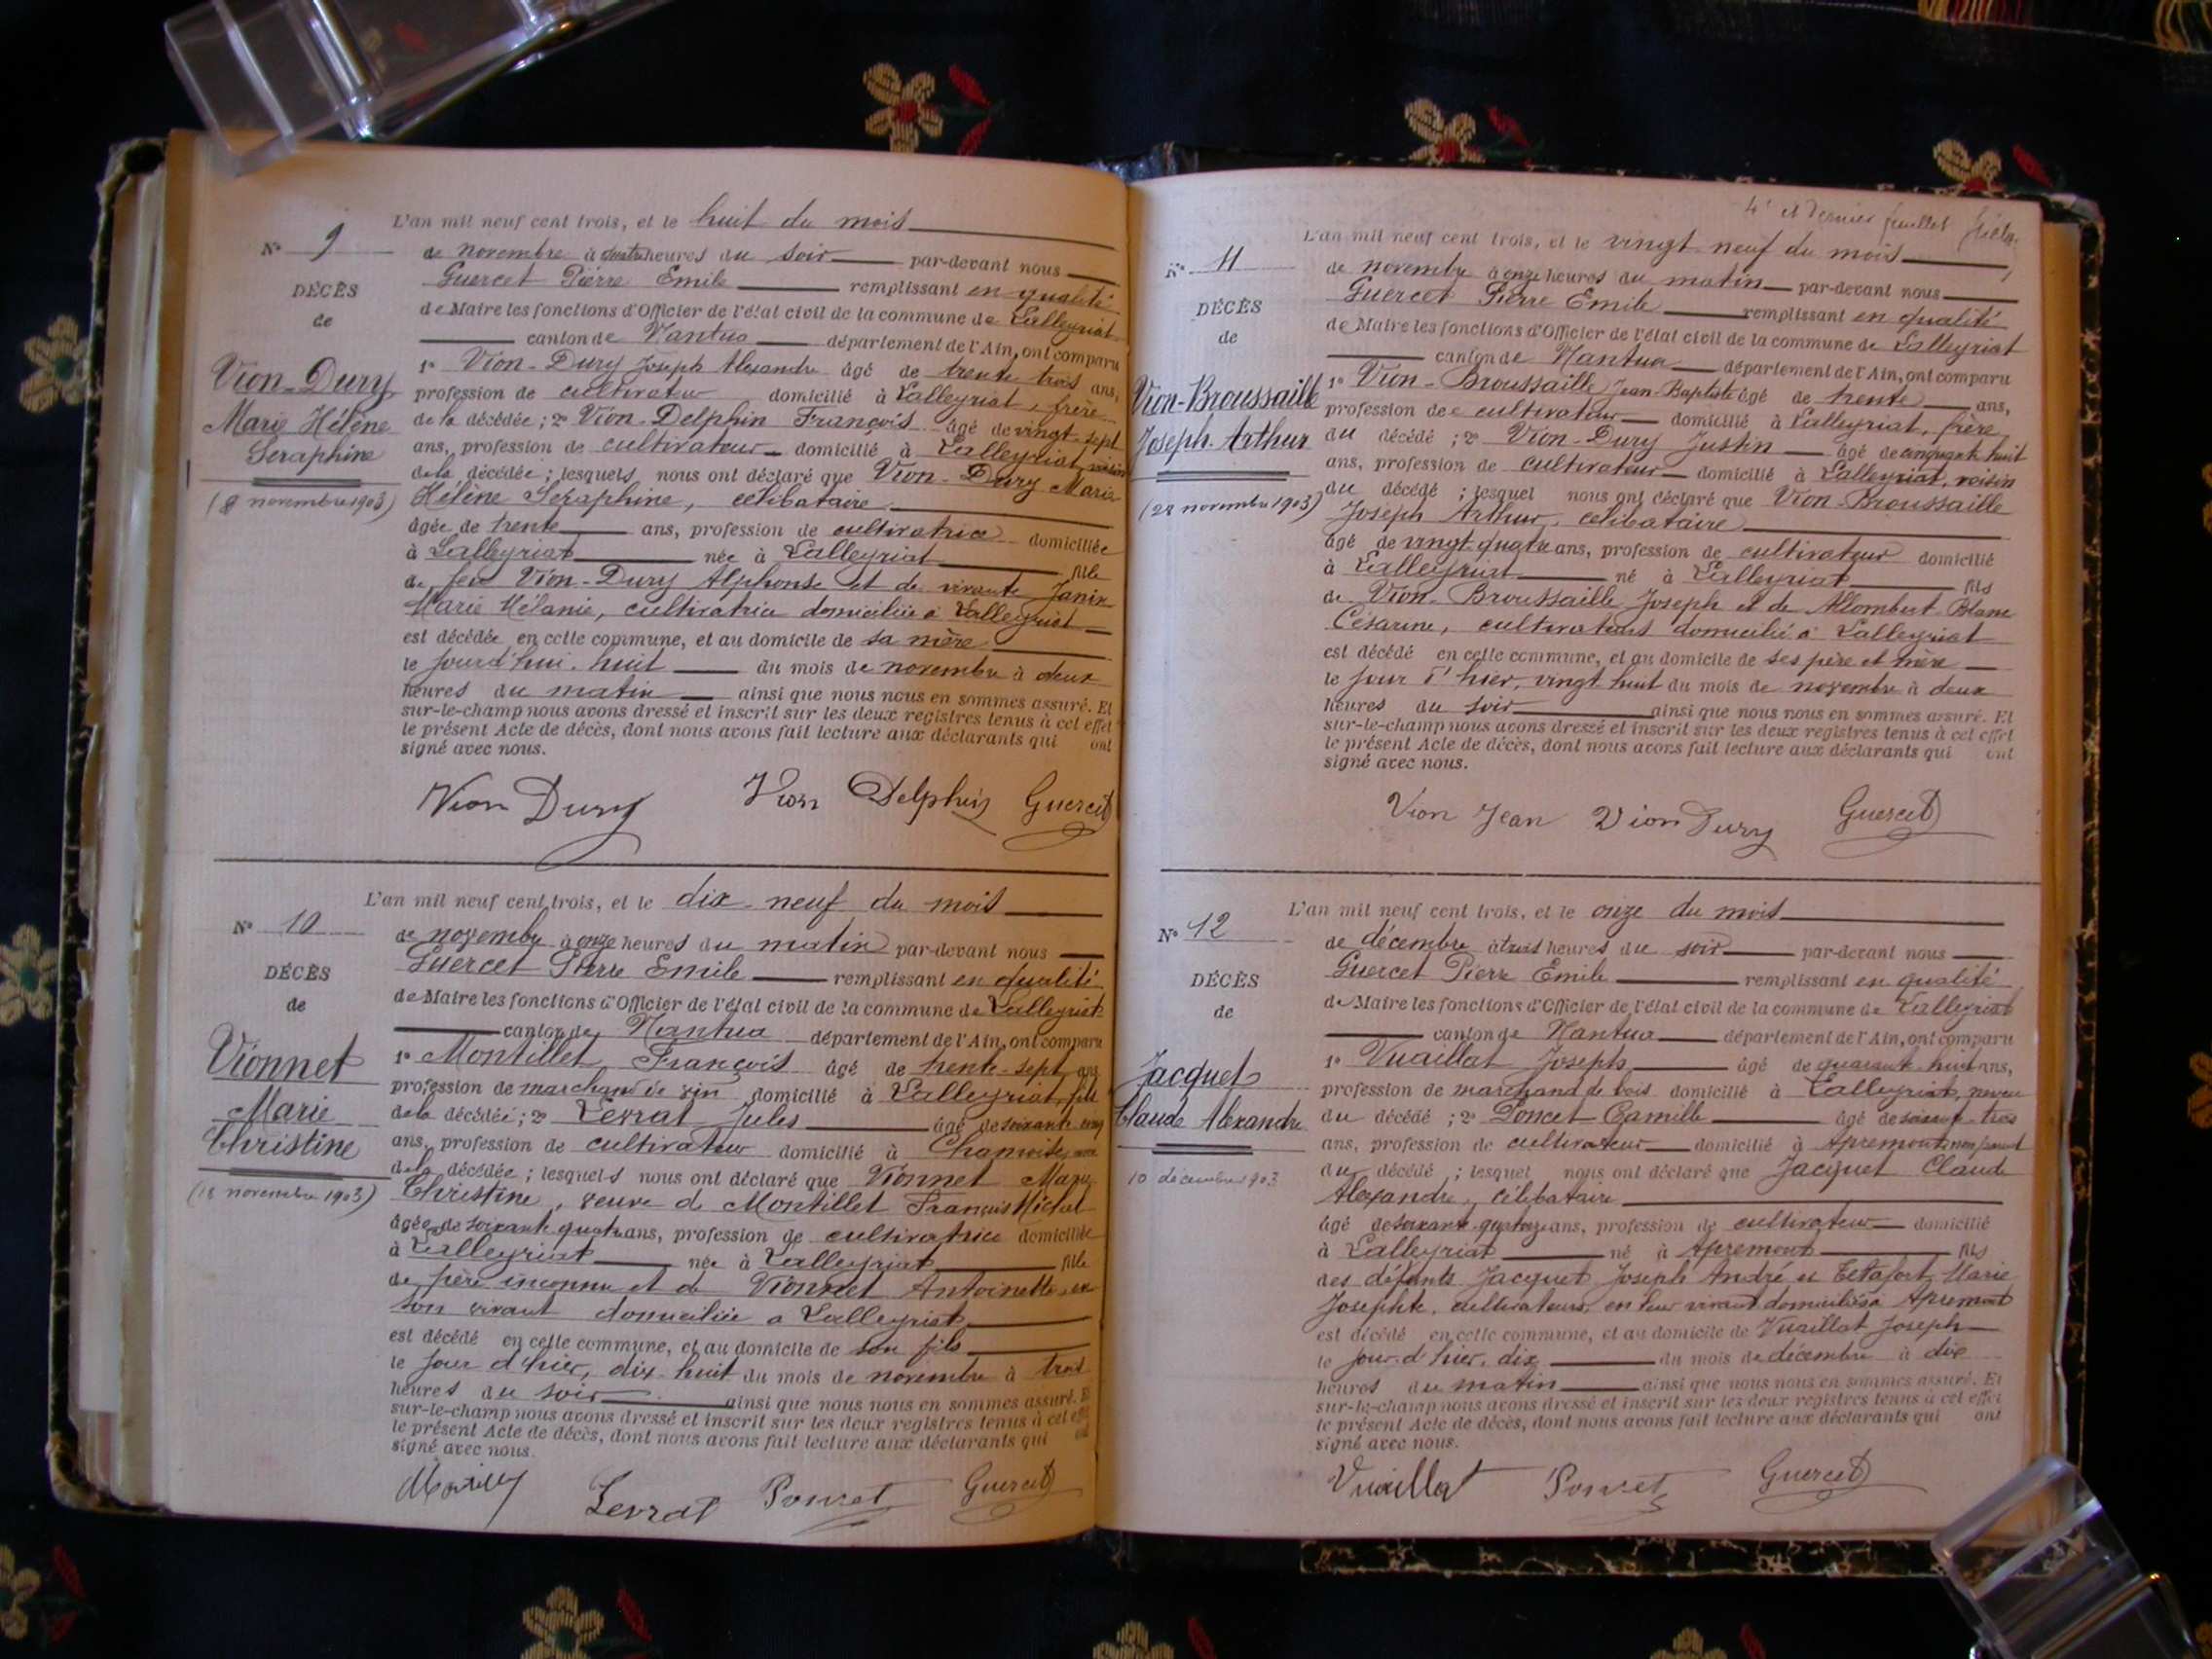 L'an mil neuf cent trois, et le huit du mois
N° 9
de novembre à quatre heures du soir par-devant nous
Guercet Pierre Emile remplissant en qualité
DÉCÈS
de Maire les fonctions d'Officier de l'état civil de la commune de Lalleyriat
de
canton de Nantua département de l'Ain, ont comparu
1° Vion-Dury Joseph Alexandre âgé de trente trois ans,
Vion-Dury
profession de cultivateur domicilié à Lalleyriat, frère
Marie Hélène
de la décédée; 2° Vion-Delphin François âgé de vingt-sept
Seraphine
ans, profession de cultivateur domicilié à Lalleyriat, voisin
de la décédée; lesquels nous ont déclaré que Vion-Dury Marie
(8 novembre 1903)
Hélène Seraphine, celibataire
âgée de trente ans, profession de cultivatrice domiciliée
à Lalleyriat née à Lalleyriat fille
de feu Vion-Dury Alphonse et de vivante Janin
Marie Mélanie, cultivatrice domiciliée à Lalleyriat
est décédée en cette commune, et au domicile de sa mère
le jourd'hui huit du mois de novembre à deux
heures du matin ainsi que nous nous en sommes assuré. Et
sur-le-champ nous avons dressé et inscrit sur les deux registres tenus à cet effet
le présent Acte de décès, dont nous avons fait lecture aux déclarants qui ont
signé avec nous.
Vion Dury Vion Delphin Guercet
L'an mil neuf cent trois, et le dix-neuf du mois
N° 10
de novembre à onze heures du matin par-devant nous
Guercet Pierre Emile remplissant en qualité
DÉCÈS
de Maire les fonctions d'Officier de l'état civil de la commune de Lalleyriat
de
canton de Nantua département de l'Ain, ont comparu
Vionnet
1° Montillet François âgé de trente-sept ans
profession de marchand de vin domicilié à Lalleyriat, fils
Marie
de la décédée; 2° Levrat Jules âgé de soixante cinq
Christine
ans, profession de cultivateur domicilié à
de la décédée; lesquels nous ont déclaré que Vionnet Marie
(18 novembre 1903)
Christine, veuve de Montillet François Michel
âgée de soixante quatre ans, profession de cultivatrice domiciliée
à Lalleyriat née à Lalleyriat fille
de père inconnu et de Vionnet Antoinette, en
son vivant domiciliée a Lalleyriat
est décédé en cette commune, et au domicile de son fils
le jour d'hier, dix-huit du mois de novembre à trois
heures du soir ainsi que nous nous en sommes assuré. Et
sur-le-champ nous avons dressé et inscrit sur les deux registres tenus à cet effet
le présent Acte de décès, dont nous avons fait lecture aux déclarants qui
signé avec nous.
Levrat Poncet Guercet
4e et dernier feuillet
L'an mil neuf cent trois, et le vingt-neuf du mois
N° 11
de novembre à onze heures du matin par-devant nous
Guercet Pierre Emile remplissant en qualité
DÉCÈS
de Maire les fonctions d'Officier de l'état civil de la commune de Lalleyriat
de
canton de Nantua département de l'Ain, ont comparu
Vion-Broussaille
1° Vion-Broussaille Jean-Baptiste âgé de trente ans,
profession de cultivateur domicilié à Lalleyriat, frère
Joseph Arthur
du décédé; 2° Vion-Dury Justin âgé de cinquante huit
ans, profession de cultivateur domicilié à Lalleyriat, voisin
(28 novembre 1903)
du décédé; lesquel nous ont déclaré que Vion-Broussaille
Joseph Arthur, celibataire
âgé de vingt-quatre ans, profession de cultivateur domicilié
à Lalleyriat né à Lalleyriat fils
de Vion-Broussaille Joseph et de Allombert-Blanc
Césarine, cultivateurs domicilié à Lalleyriat
est décédé en cette commune, et au domicile de ses père et mère
le jour d'hier, vingt huit du mois de novembre à deux
heures du soir ainsi que nous nous en sommes assuré. Et
sur-le-champ nous avons dressé et inscrit sur les deux registres tenus à cet effet
le présent Acte de décès, dont nous avons fait lecture aux déclarants qui ont
signé avec nous.
Vion Jean Vion Dury Guercet
L'an mil neuf cent trois, et le onze du mois
N° 12
de décembre à trois heures du soir par-devant nous
Guercet Pierre Emile remplissant en qualité
DÉCÈS
de Maire les fonctions d'Officier de l'état civil de la commune de Lalleyriat
de
canton de Nantua département de l'Ain, ont comparu
Jacquet
1° Vuaillat Joseph âgé de quarante huit ans,
profession de marchand de bois domicilié à Lalleyriat, neveu
Claude Alexandre
du décédé; 2° Poncet Camille âgé de soixante trois
ans, profession de cultivateur domicilié à Apremont, non parent
10 décembre 1903
du décédé; lesquel nous ont déclaré que Jacquet Claude
Alexandre, célibataire
âgé de soixante-quatorze ans, profession de cultivateur domicilié
à Lalleyriat né à Apremont fils
des défunts Jacquet Joseph André et Tetafort Marie
Josephte, cultivateurs, en leur vivant domiciliés à Apremont
est décédé en cette commune, et au domicile de Vuaillat Joseph
le jour d'hier, dix du mois de décembre à dix
heures du matin ainsi que nous nous en sommes assuré. Et
sur-le-champ nous avons dressé et inscrit sur les deux registres tenus à cet effet
le présent Acte de décès, dont nous avons fait lecture aux déclarants qui ont
signé avec nous.
Vuaillat Poncet Guercet